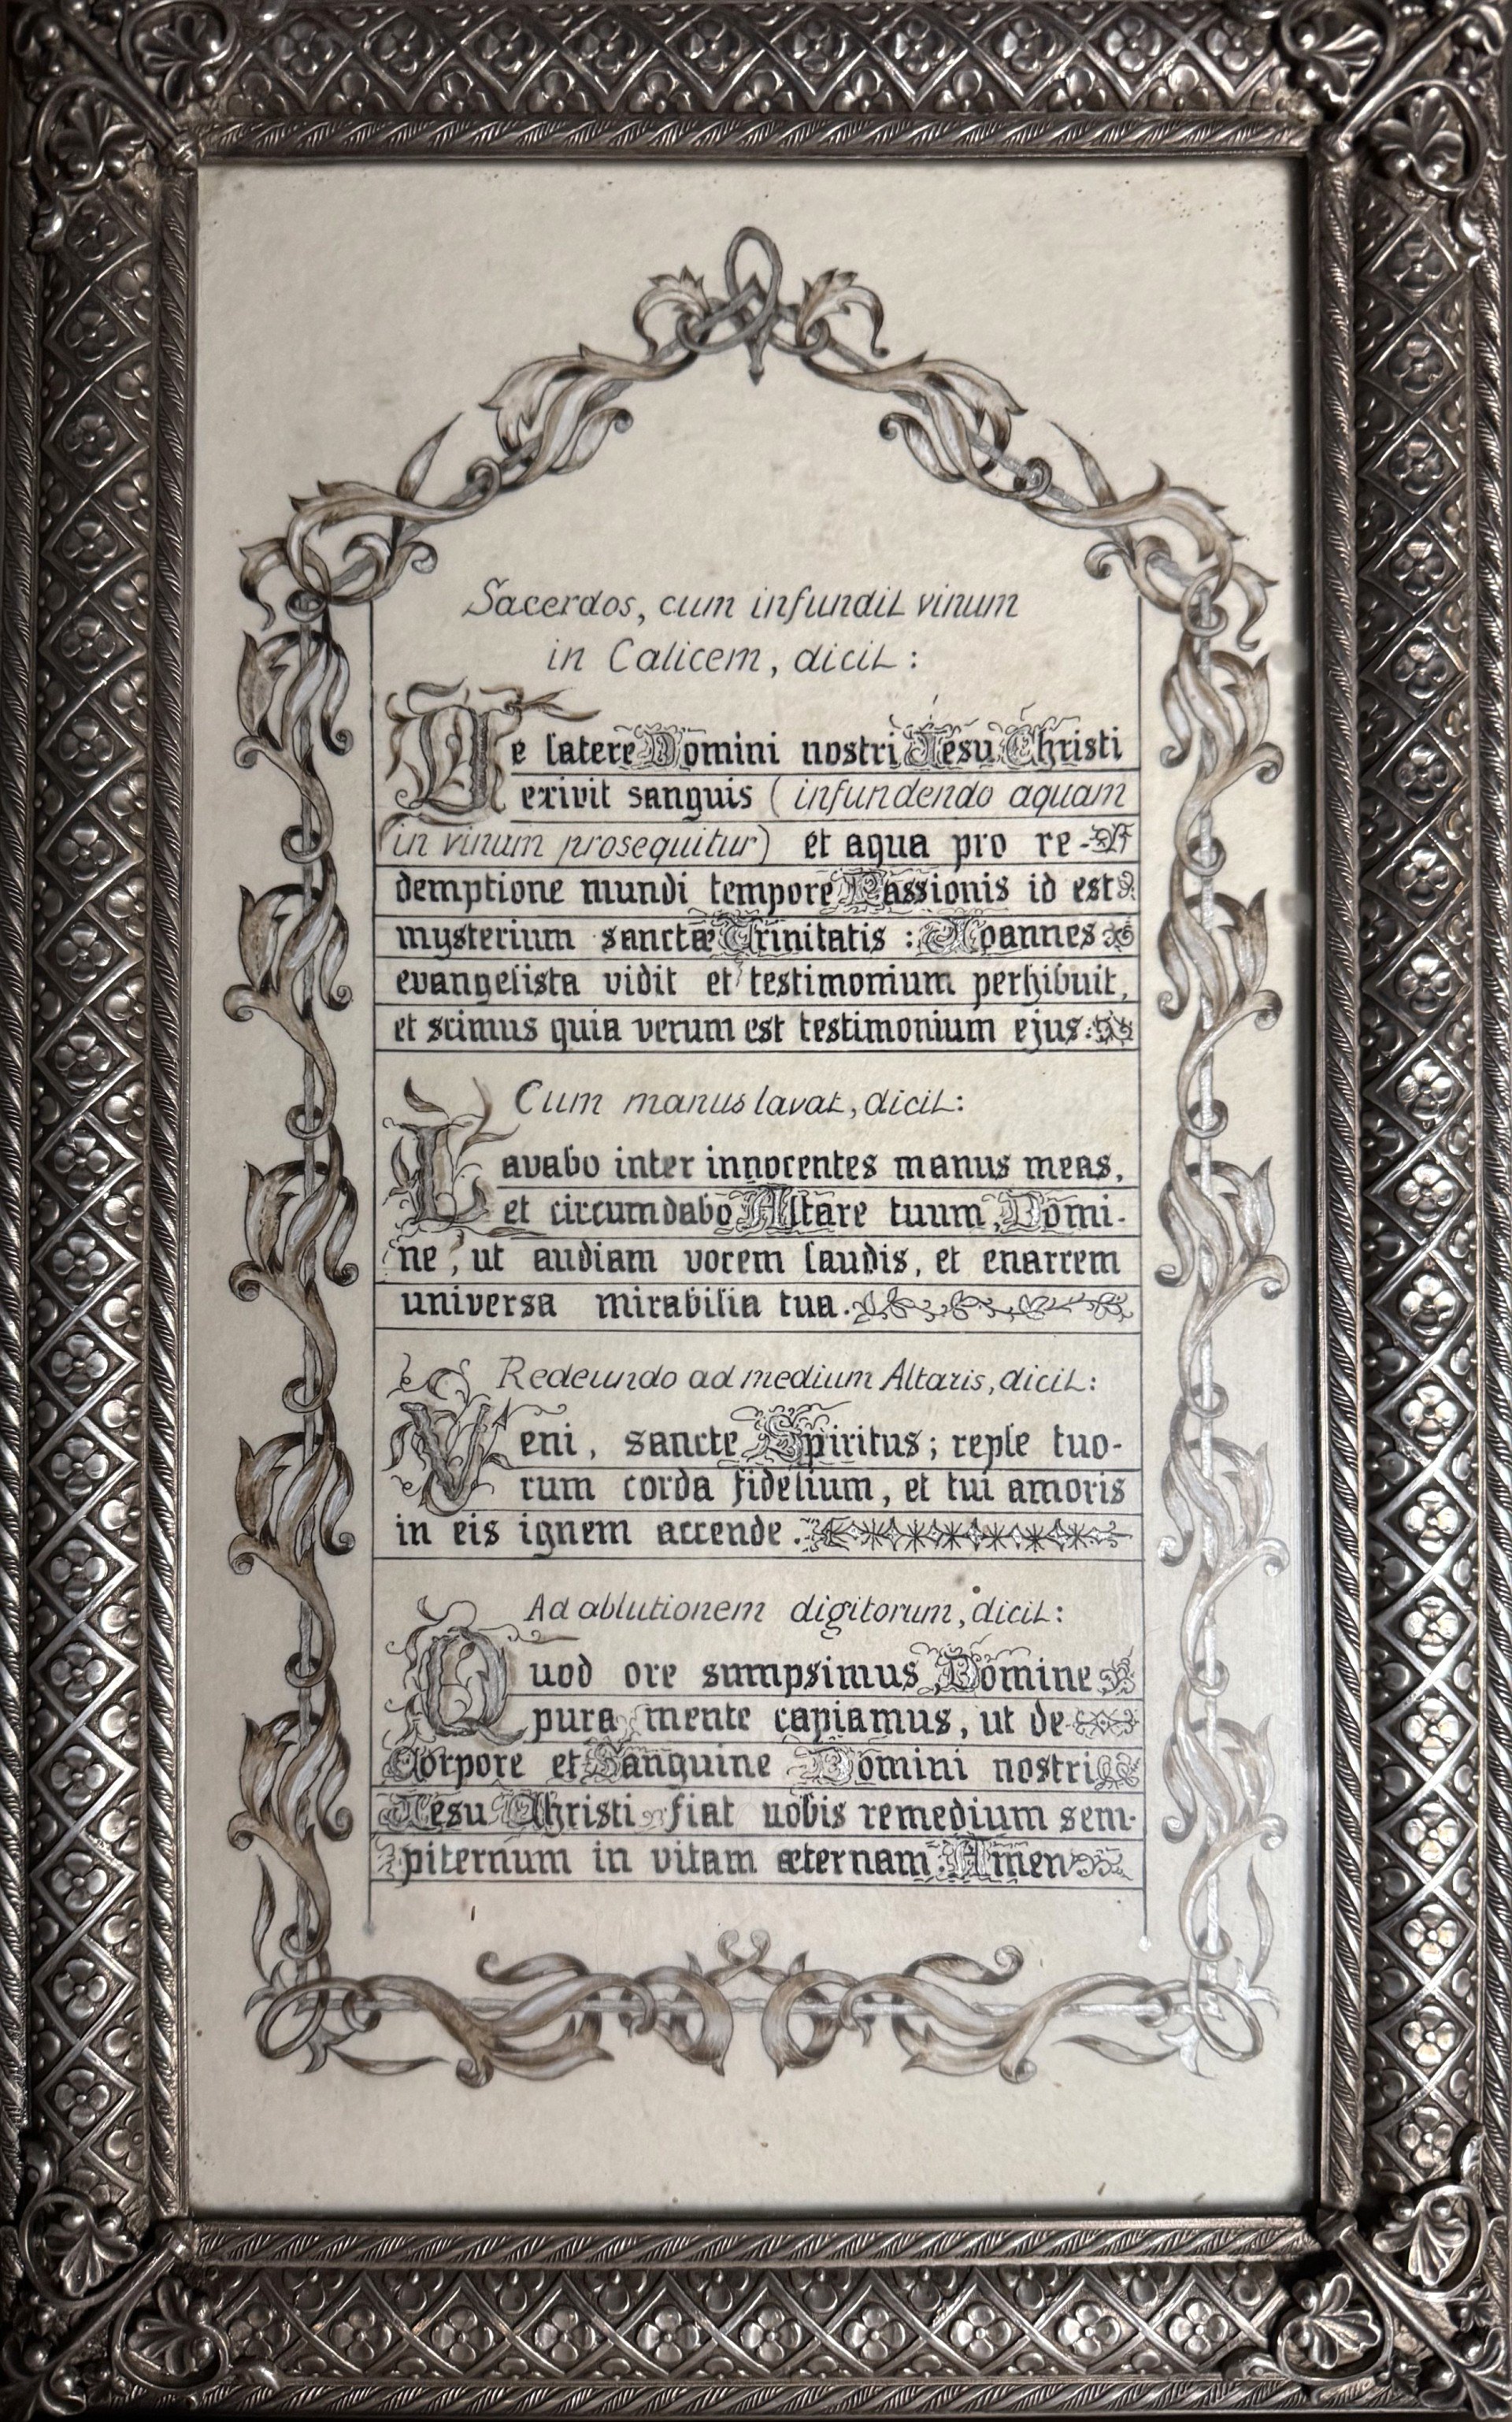 Sacerdos, cum infundit vinum
in Calicem, dicit:
De latere Domini nostri Jesu Christi
exivit sanguis (infundendo aquam
in vinum prosequitur) et aqua pro re-
demptione mundi tempore Passionis id est
mysterium sanctæ Trinitatis : Joannes
evangelista vidit et testimonium perhibuit,
et scimus quia verum est testimonium ejus.
Cum manus lavat, dicit:
Lavabo inter innocentes manus meas,
et circumdabo Altare tuum, Domi-
ne, ut audiam vocem laudis, et enarrem
universa mirabilia tua.
Redeundo ad medium Altaris, dicit:
Veni, sancte Spiritus; reple tuo-
rum corda fidelium, et tui amoris
in eis ignem accende.
Ad ablutionem digitorum, dicit:
Quod ore sumpsimus, Domine
pura mente capiamus, ut de
Corpore et Sanguine Domini nostri
Jesu Christi fiat nobis remedium sem-
piternum in vitam æternam. Amen